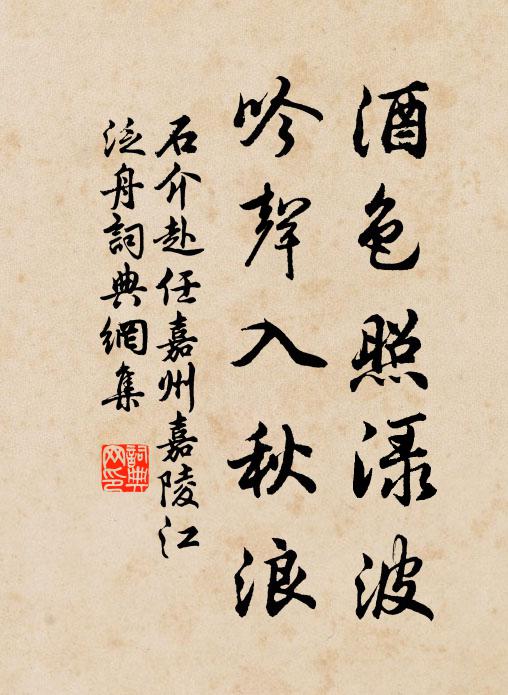 酒色照渌波
吟聲入秋浪
石介赴任嘉州嘉陵江
泛舟詞典網集
詞典网印